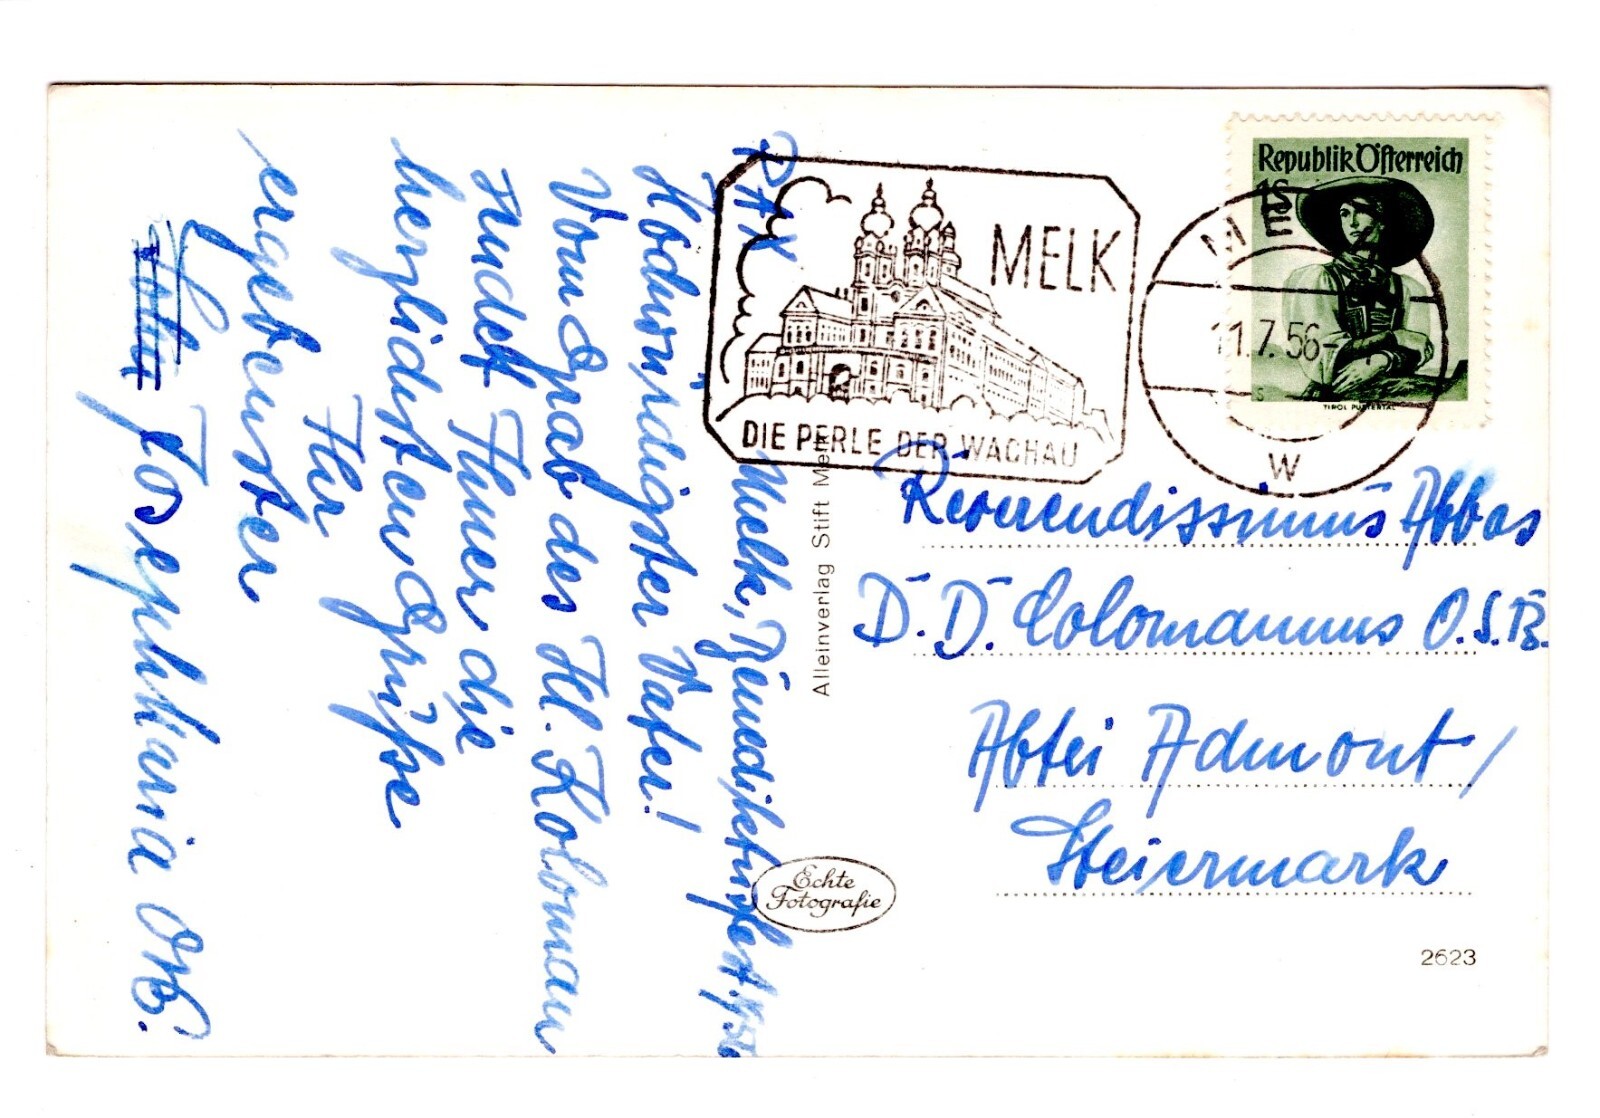 PAX Melk, Benediktusfest, 1956
Hochwürdigster Vater!
Vom Grab des Hl. Koloman
sendet Ihnen die
herzlichsten Grüße
Ihr
ergebenster
Joseph Maria
MELK
DIE PERLE DER WACHAU
MELK
11.7.56
W
Republik Österreich
1S
TIROL PUSTERTAL
Alleinverlag Stift Melk
Echte
Fotografie
Reverendissimus Abbas
D. D. Colomannus O.S.B.
Abtei Admont /
Steiermark
2623